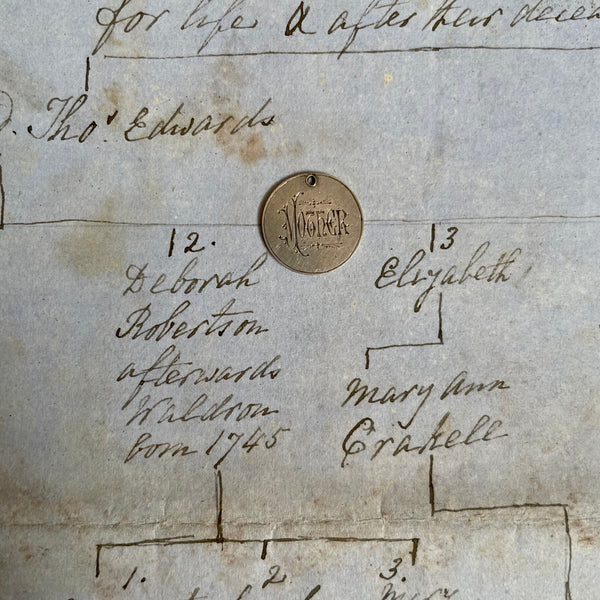 for life & after their
Thos Edwards
MOTHER
12.
Deborah
Robertson
afterwards
Waldron
born 1745
13
Elizabeth
Mary Ann
Crakell
1. 2 3.
Mary